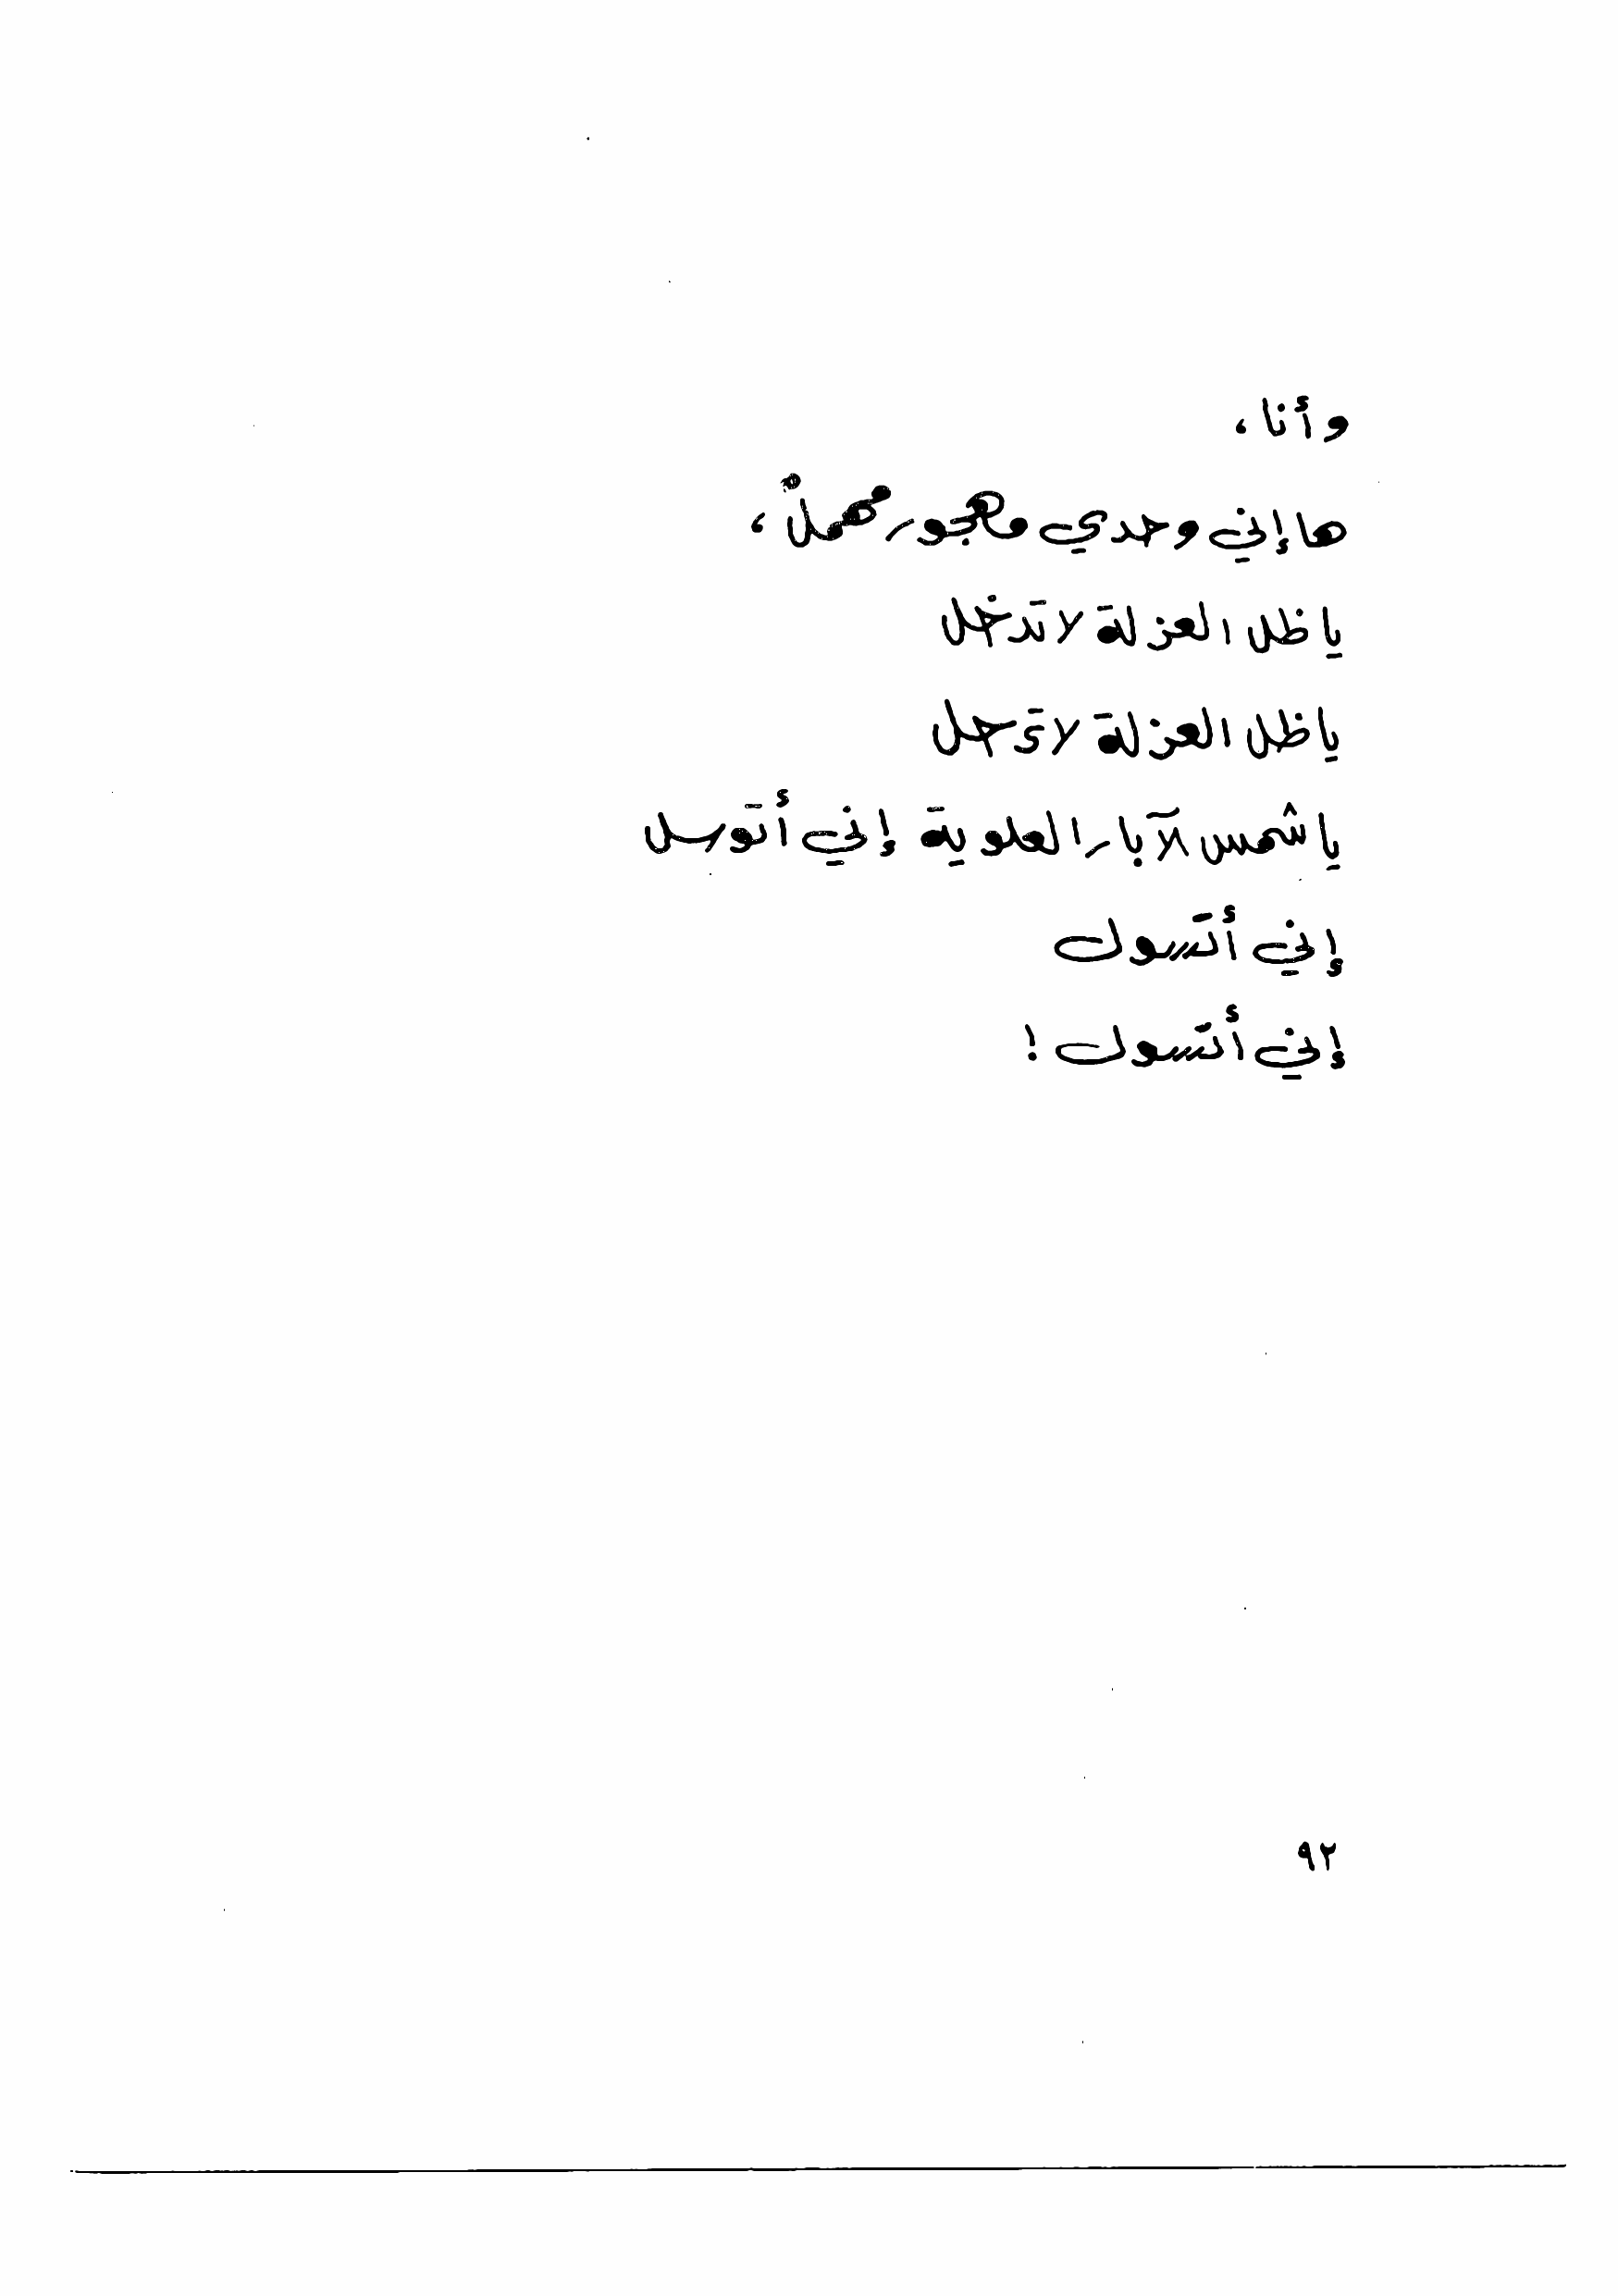 وأنا،
ها إني وحدي مهجور مهملٌ،
يا ظل العزلة لا تدخل
يا ظل العزلة لا ترحل
يا شمس الآبار العلوية إني أتوسل
إني أتسول
إني أتسول !
٩٢